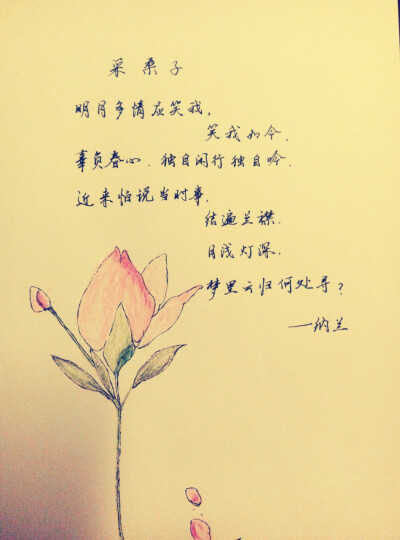 采桑子
明月多情应笑我，
笑我如今，
辜负春心，独自闲行独自吟，
近来怕说当时事，
结遍兰襟，
月浅灯深，
梦里云归何处寻？
—纳兰